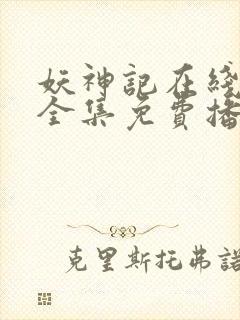 妖神記在綫
全集免費播
克里斯托弗諾